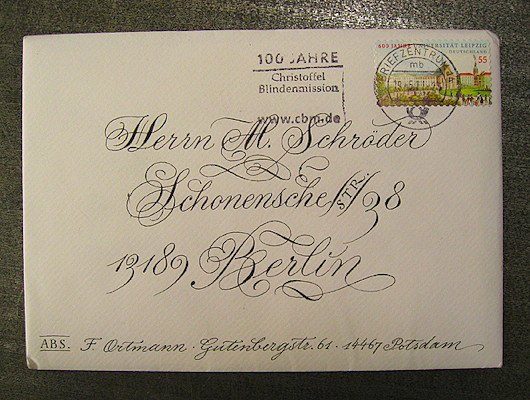 100 JAHRE
Christoffel
Blindenmission
www.cbm.de
600 JAHRE UNIVERSITÄT LEIPZIG
DEUTSCHLAND
55
BRIEFZENTRUM
mb
Herrn M. Schröder
Schonensche STR. 38
13189 Berlin
ABS. F. Ortmann · Gutenbergstr. 61 · 14467 Potsdam